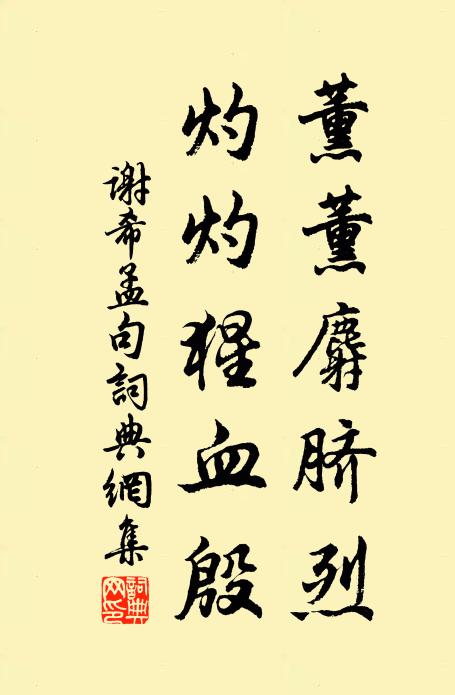 薰薰麝脐烈
灼灼猩血殷
谢希孟句詞典網集
詞典网印